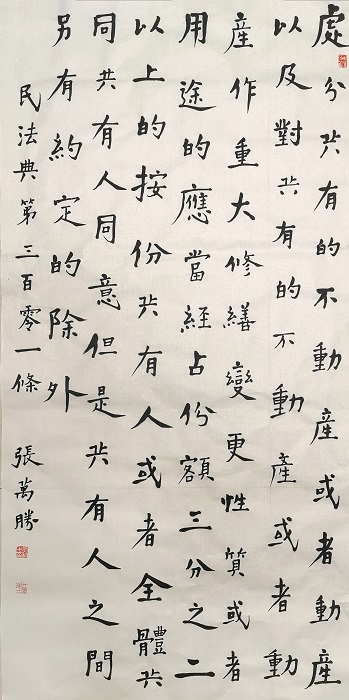 處分共有的不動產或者動產
以及對共有的不動產或者動
產作重大修繕變更性質或者
用途的應當經占份額三分之二
以上的按份共有人或者全體共
同共有人同意但是共有人之間
另有約定的除外
民法典第三百零一條 張萬勝